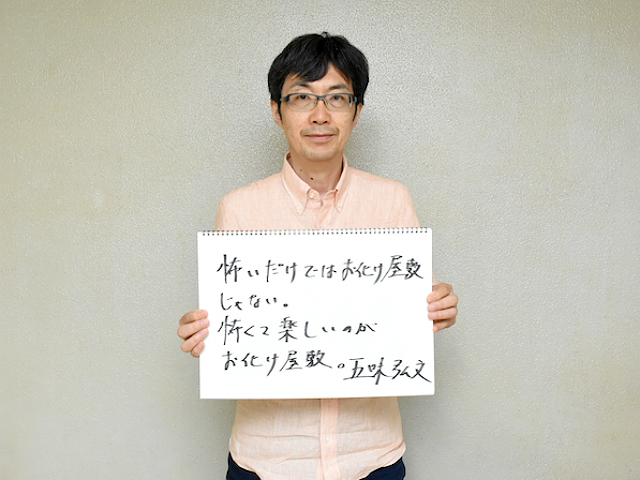 怖いだけではお化け屋敷
じゃない。
怖くて楽しいのが
お化け屋敷。五味弘文